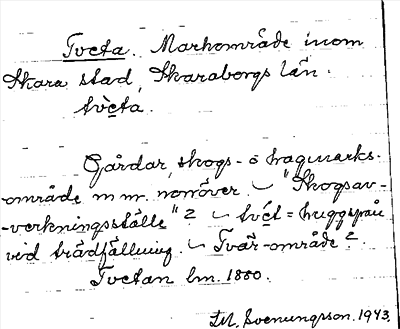 Tveta. Markområde inom
Skara stad, Skaraborgs län.
tvèta.
Gårdar, skogs- o hagmarks-
område m m. norröver. – "Skogsav-
-verkningsställe"? – tvét = huggspån
vid trädfällning. – Tvär-område?
Tvetan lm. 1880.
M. Svenungson. 1943.